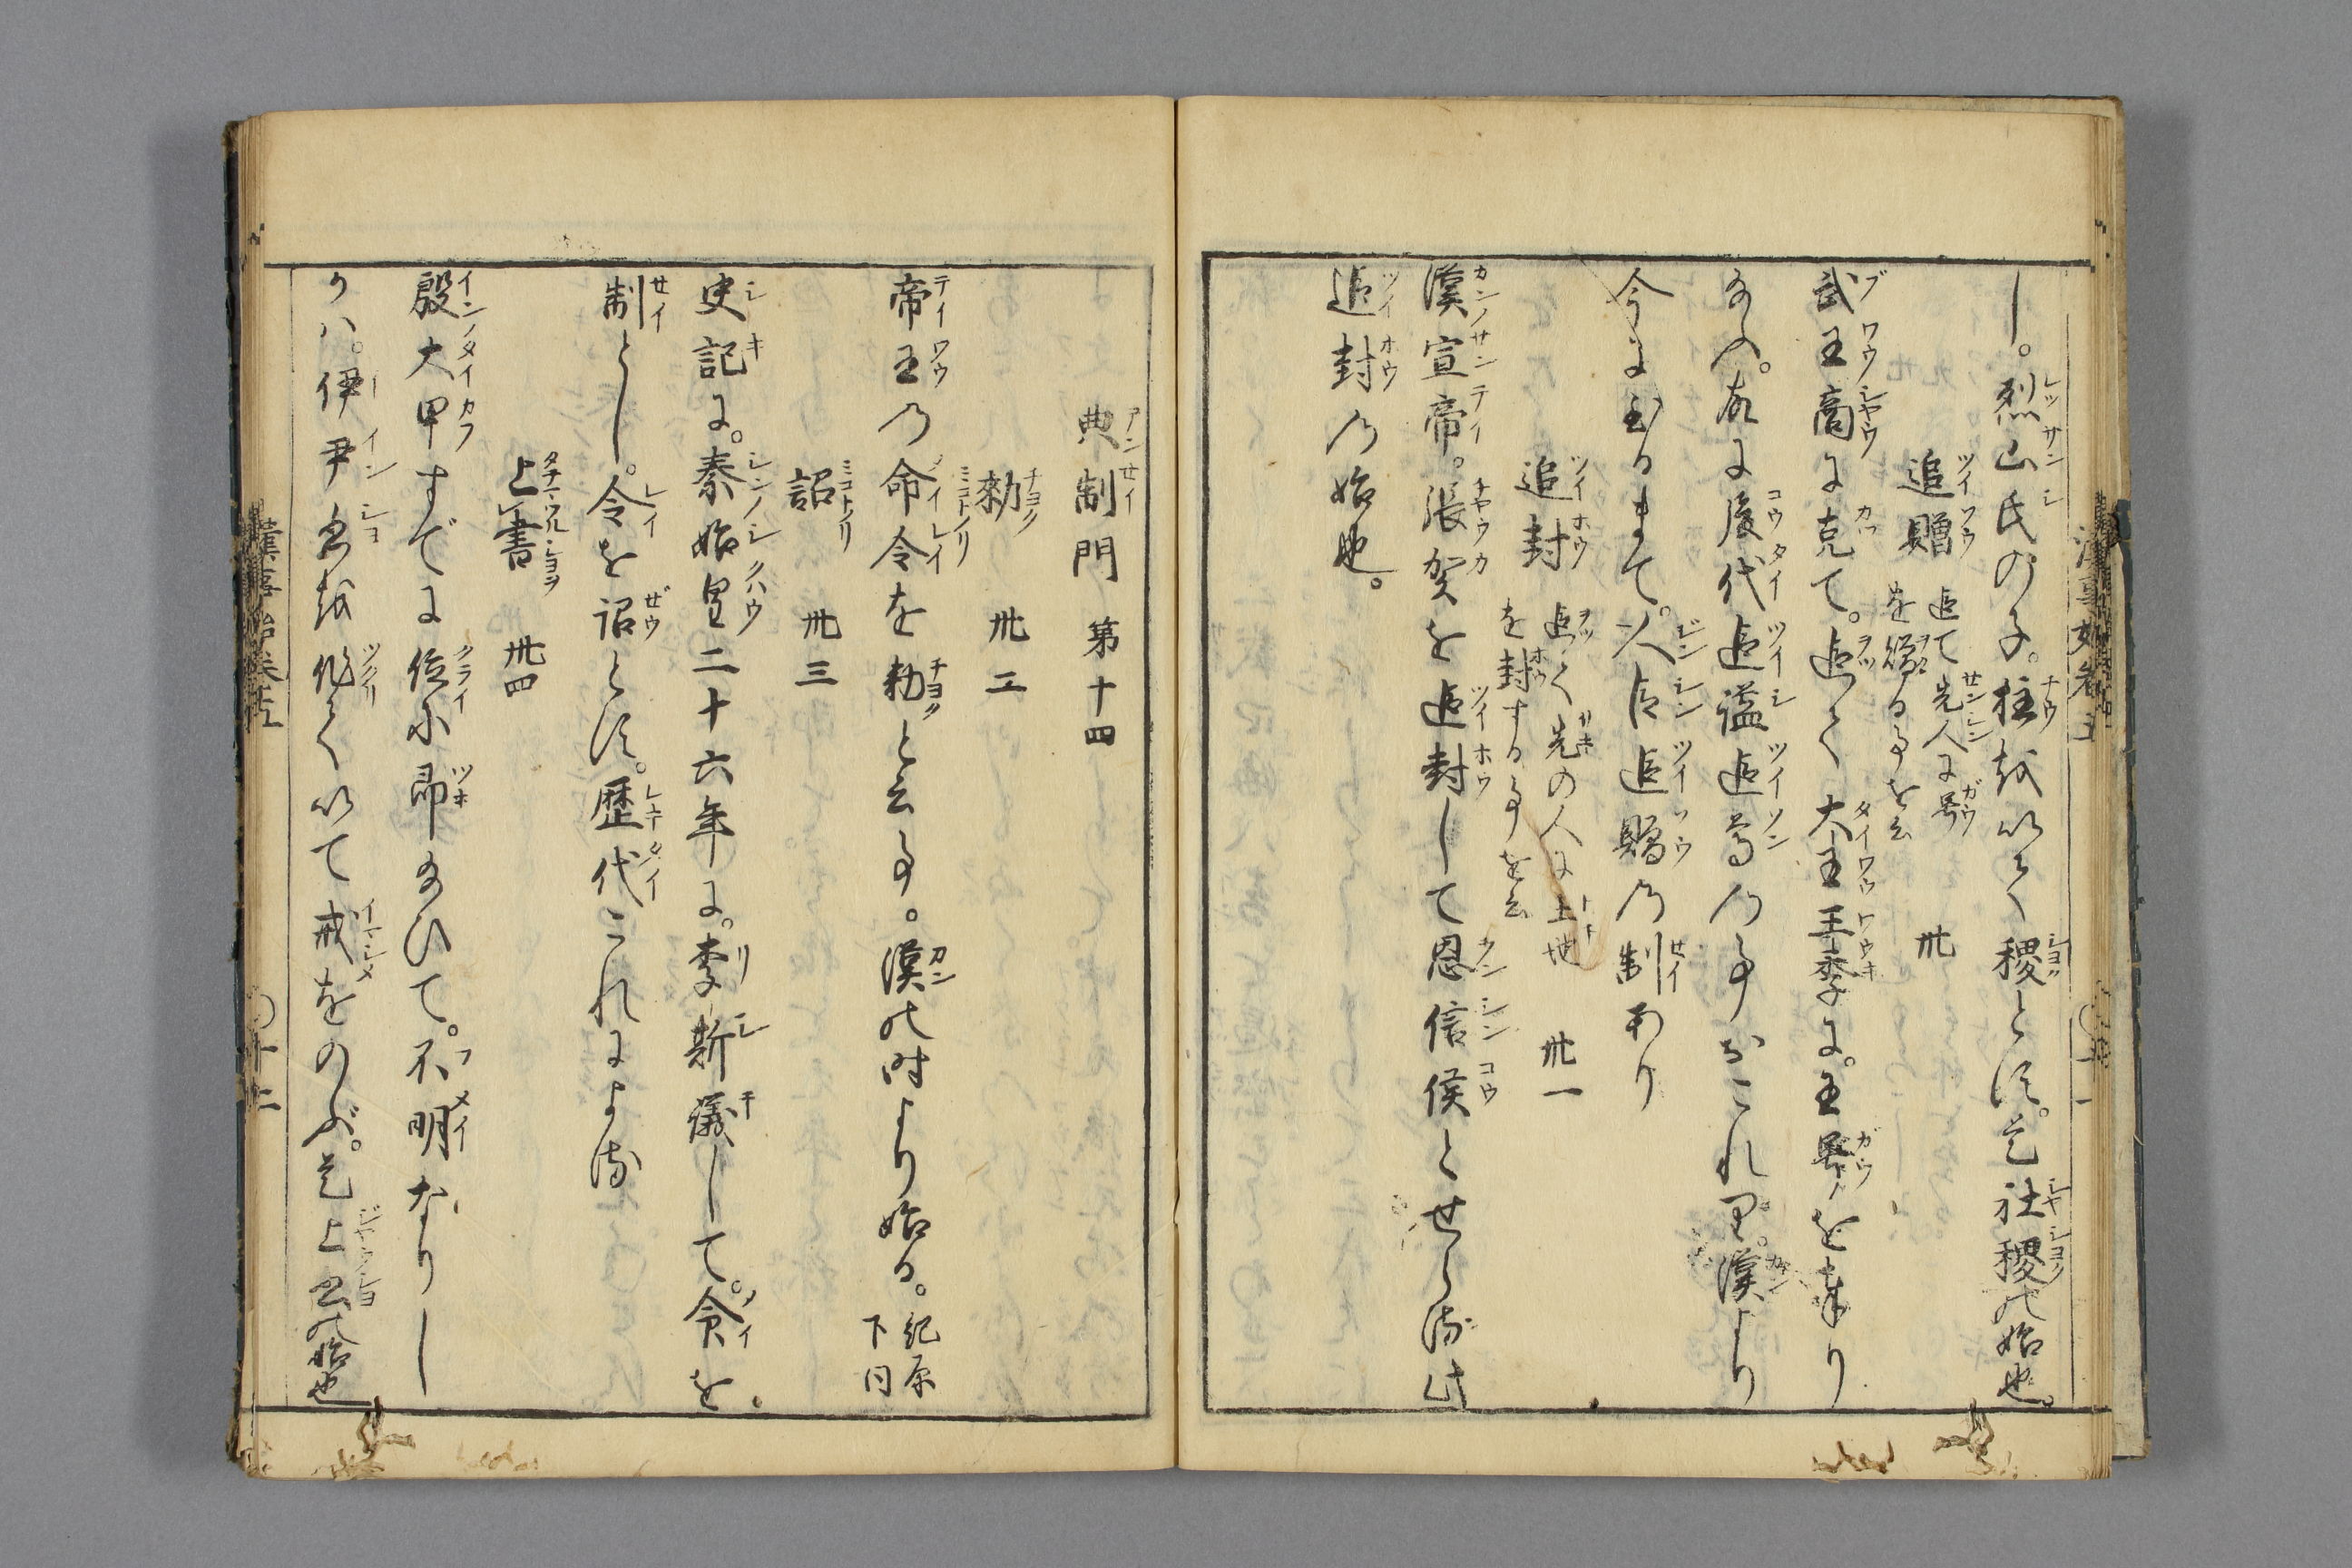 し。烈山氏の子。柱を以て稷とす。是社稷の始也。
追贈 追て先人に号を贈る事を云 卅
武王商に克て。追て大王王季に。王号を奉り
給ふ。故に後代追謚追尊の事おこれり。漢より
今に至るまて。人臣追贈の制あり
追封 追て先の人に土地を封する事を云 卅一
漢宣帝。張賀を追封して恩信侯とせらる此
追封の始也。
典制門 第十四
勅 卅二
帝王の命令を勅と云事。漢の時より始る。紀原下同
詔 卅三
史記に。秦始皇二十六年に。李斯議して。命を。
制とし。令を詔とす。歴代これによる
上書 卅四
殷大甲すでに位に即給ひて。不明なりし
かハ。伊尹書を作て以て戒をのぶ。是上書の始也
漢事始巻五 〇十二